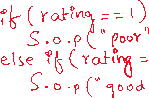 if (rating == 1)
S.o.p("poor"
else if (rating =
S.o.p("good